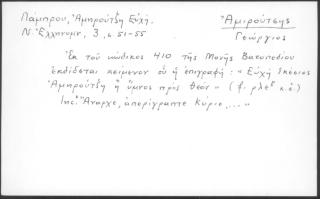 Λάμπρου, Ἀμηρούτζη Εὐχή,
Ἀμιρούτσης
Γεώργιος
Ν. Ἑλληνομν. 3, σ. 51-55
Ἐκ τοῦ κώδικος 410 τῆς Μονῆς Βατοπεδίου
ἐκδίδεται κείμενον οὗ ἡ ἐπιγραφή: « Εὐχὴ
Ἀμηρούτζη ἢ ὕμνος πρὸς θεόν » (φ. ρλε κ.ἑ.)
Inc: Ἄναρχε, ἀπερίγραπτε Κύριε,... »